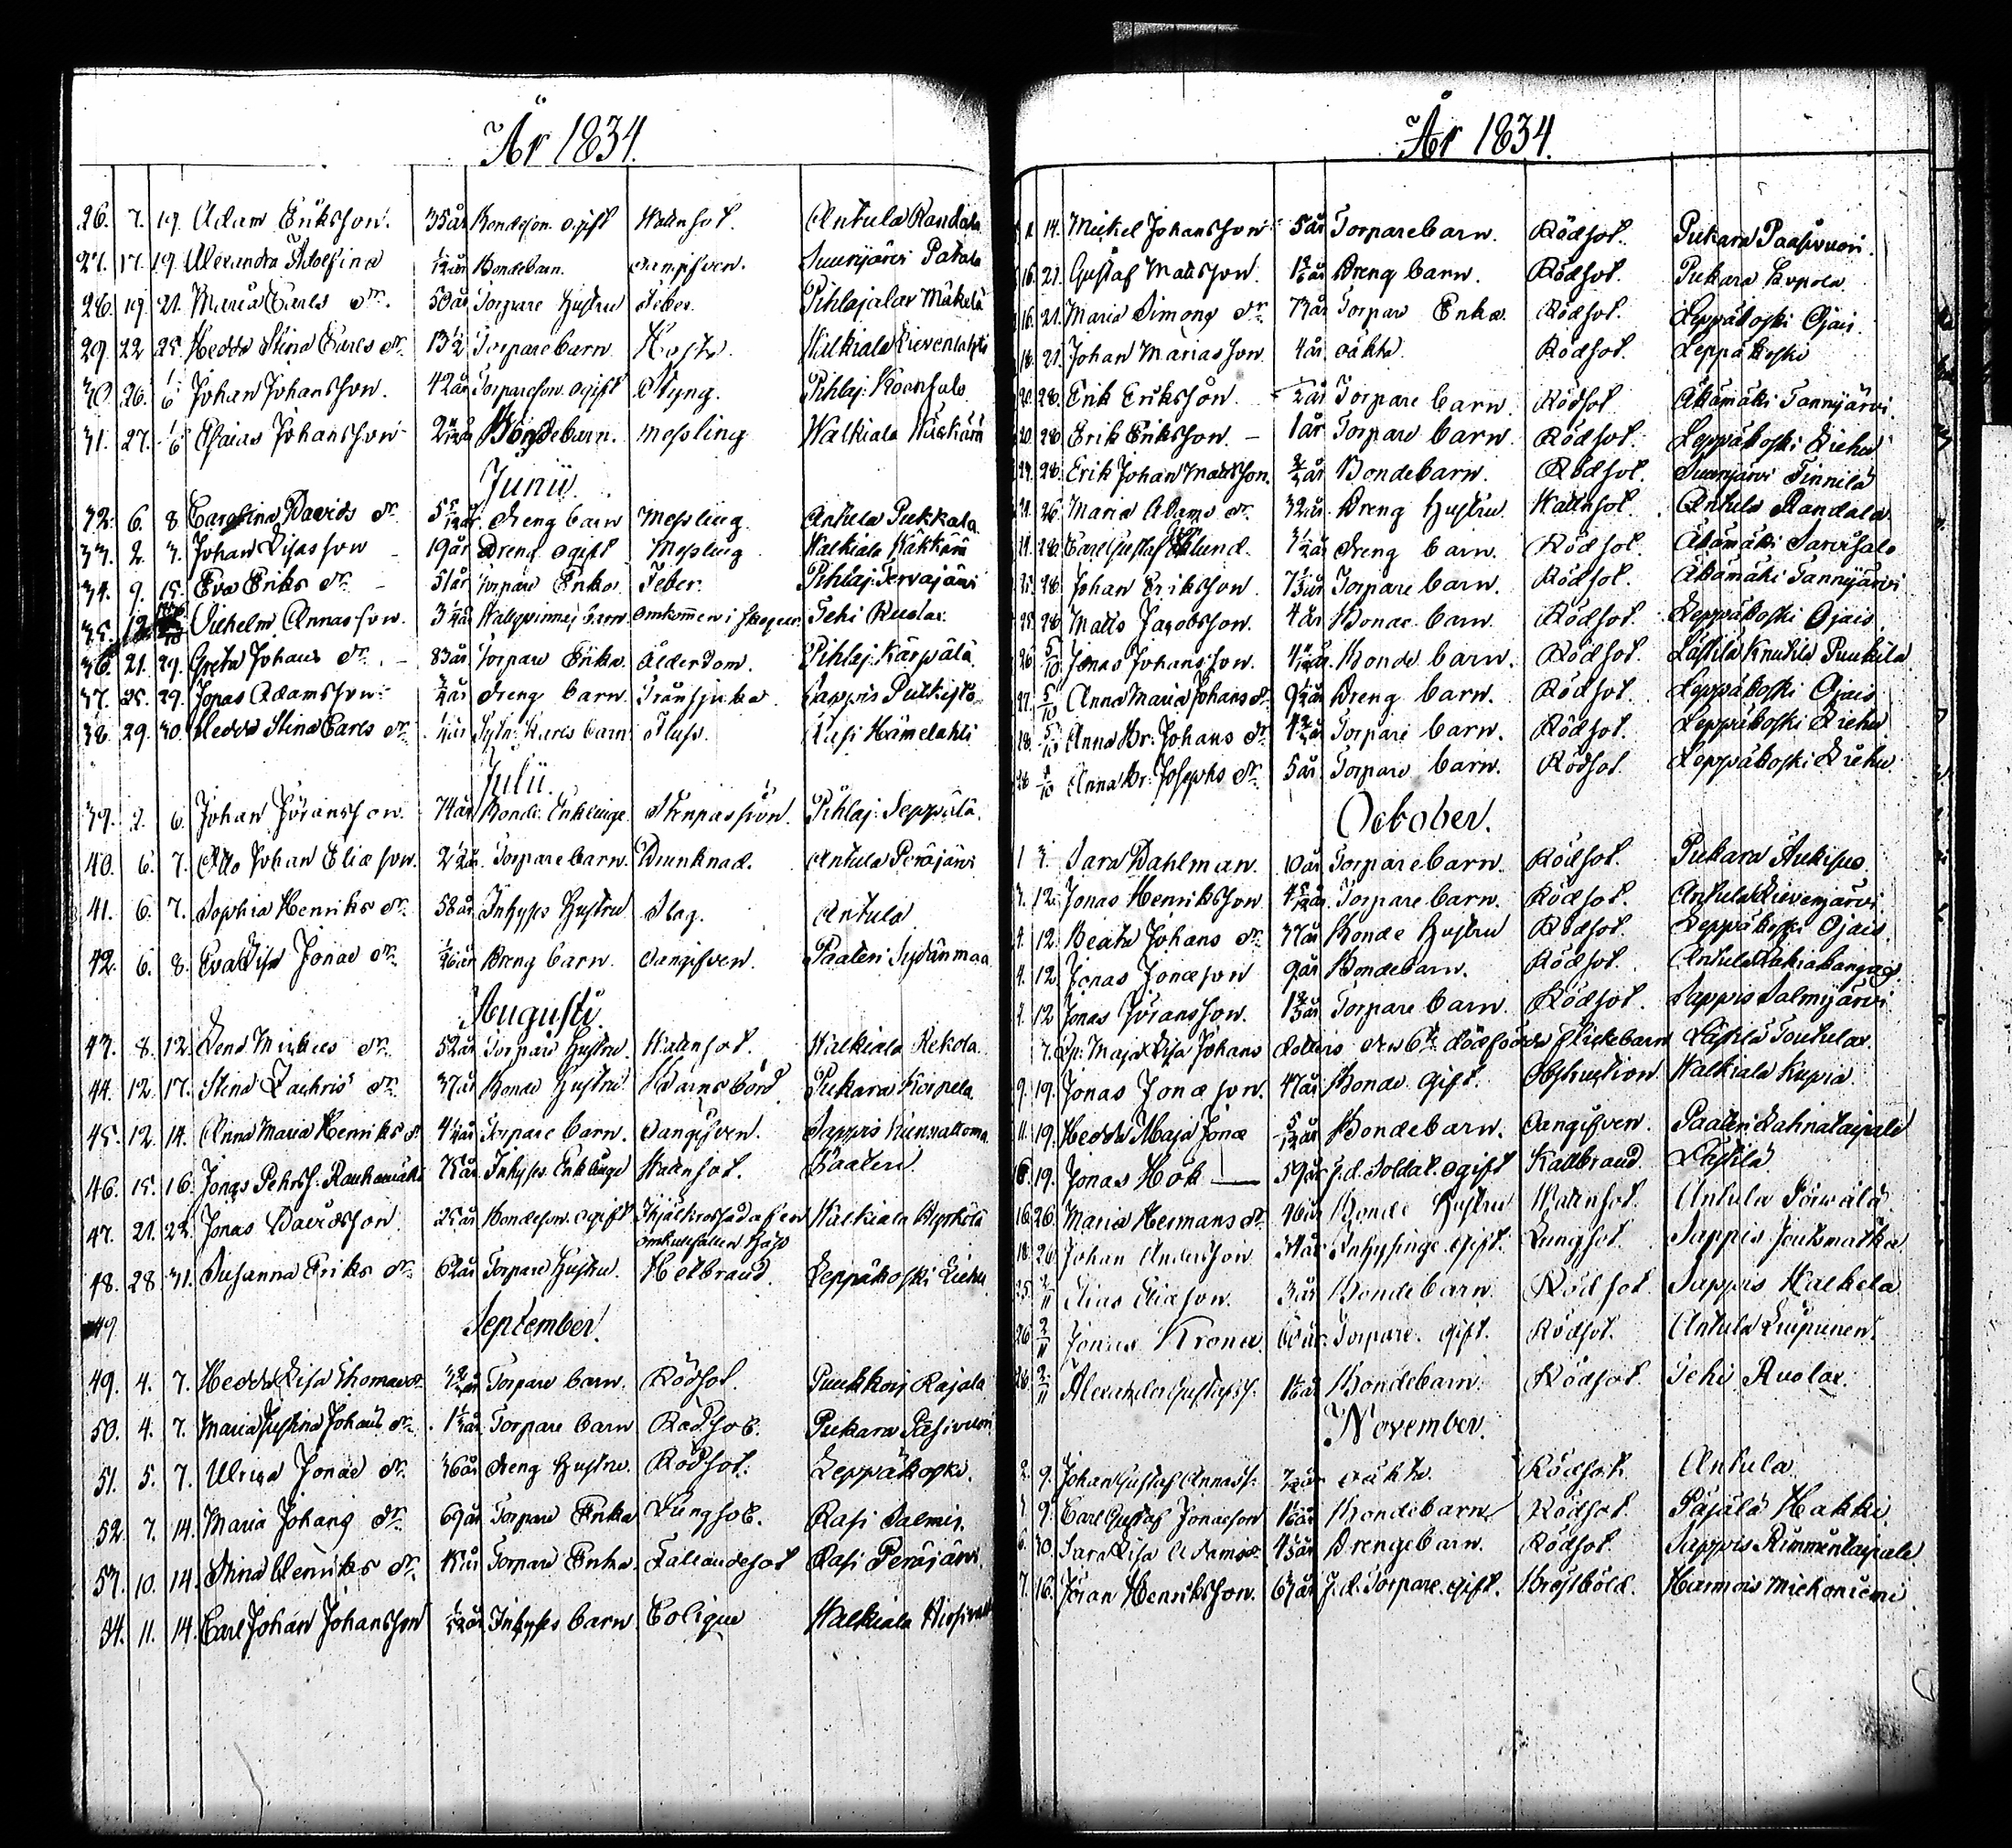 År 1834.
26. 7. 19. Adam Eriksson. 35 år Bondeson. ogift Wattnsot. Antula Randala
27. 17. 19. Alexandra Adolfina 1/12 år Bondebarn. oangifven. Suurijärvi Pakala
28. 19. 21. Maria Carls dr. 50 år Torpare Hustru Feber. Pihlajalax Mäkelä
29. 22. 25. Hedda Stina Carls dr. 13 1/2 Torparebarn Hosta. Walkiala Lievenlahti
30. 26. 1/6 Johan Johansson. 42 år Torpareson. ogift Styng. Pihlaj.
31. 27. 1/6 Esaias Johansson Bondebarn. Messling Walkiala
Junii.
32. 6. 8. Carolina Davids dr. Drengbarn Messling Antula Pukkala
33. 2. 3. Johan Lisasson 19 år Dreng ogift Messling Walkiala
34. 9. 15. Eva Eriks dr. 51 år Torpare Enka Feber. Pihlaj. Tervajärvi
35. Vilhelm Annasson. omkommen i skogen Tehi Ruolax
36. 21. 29. Greta Johans dr. 83 år Torpare Enka. Ålderdom. Pihlaj. Kärpälä
37. 25. 29. Jonas Adamsson. Dreng barn Trånsjuka Sappis Putkisto
38. 29. 30. Hedda Stina Carls dr. barn Rasi Hämelahti
Julii.
39. 2. 6. Johan Jöransson. 74 år Bonde Enkling Pihlaj. Seppälä
40. 6. 7. Otto Johan Eliason. 2 1/2 år Torparebarn. Drunknad. Antula Peräjärvi
41. 6. 7. Sophia Henriks dr. 58 år Inhyses Hustru Slag. Antula
42. 6. 8. Eva Lisa Jonae dr. Dreng barn. oangifven. Paaten Sydänmaa
Augusti.
43. 8. 12. Lena Mickels dr. 52 år Torpare Hustru. Wattnsot. Walkiala Rekola
44. 12. 17. Stina Zachris dr. 37 år Bonde Hustru Barnsbörd Pukara Korpela
45. 12. 14. Anna Maria Henriks dr Torpare barn. oangifven. Sappis
46. 15. 16. Jonas Pehrss. Raukamäki 75 år Inhyses Enkling Wattnsot. Paaten
47. 21. 22. Jonas Davidsson. 25 år Bondeson. ogift Ihjälkrossad af en Walkiala
omkullfallen
48. 28. 31. Susanna Eriks dr. 62 år Torpare Hustru. Hetbrand Leppäkoski Liehu
49
September.
49. 4. 7. Hedda Lisa Thomas dr Torpare barn. Rödsot. Puukkois Rajala
50. 4. 7. Maria Justina Johans dr. 1 1/2 år Torpare barn Rödsot. Pukara Pasivuori
51. 5. 7. Ulrica Jonae dr. 36 år Dreng Hustru. Rödsot. Leppäkoski.
52. 7. 14. Maria Johans dr. 69 år Torpare Enka Lungsot. Rasi Salmis.
53. 10. 14. Stina Henriks dr. Torpare Enka. Fallandesot Rasi Peräjärvi.
54. 11. 14. Carl Johan Johansson Inhyses barn Colique Walkiala
År 1834.
14. Mickel Johansson 5 år Torparebarn. Rödsot. Pukara Paasivuori.
16. 21. Gustaf Mattsson. Dreng barn. Rödsot. Pukara
16. 21. Maria Simons dr. 73 år Torpare Enka. Rödsot. Leppäkoski Ojais.
18. 21. Johan Mariasson 4 år oäkta. Rödsot. Leppäkoski
20. 28. Erik Eriksson. 1/2 år Torpare barn. Rödsot Äkämäki Tannijärvi.
20. 28. Erik Eriksson. 1 år Torpare barn. Rödsot. Leppäkoski Liehu
28. Erik Johan Mattsson. Bondebarn. Rödsot. Suurijärvi Tinnilä
26. Maria Adams dr. 32 år Dreng Hustru Wattnsot. Antula Randala
28. Carl Gustaf Dreng barn. Rödsot. Äkämäki Sarvisalo
25. 28. Johan Eriksson. Torpare barn. Rödsot. Äkämäki Tannijärvi
25. 28. Matts Jacobsson. 4 år Bonde barn. Rödsot. Leppäkoski Ojais.
26. 5/10 Jonas Johansson. Bonde barn. Rödsot. Lästilä Knutila Puukila
27. 5/10 Anna Maria Johans dr. Dreng barn. Rödsot. Leppäkoski Ojais
28. 5/10 Anna Br: Johans dr. Torpare barn. Rödsot. Leppäkoski Liehu
28. Anna Br: Josephs dr. 5 år Torpare barn. Rödsot. Leppäkoski Liehu
October.
1 3. Sara Dahlman. 10 år Torparebarn. Rödsot. Pukara
3. 12. Jonas Henriksson Torparebarn. Rödsot. Antula Lievenjärvi
4. 12. Beata Johans dr. 37 år Bonde Hustru Rödsot. Leppäkoski Ojais.
4. 12. Jonas Jonason 9 år Bondebarn. Rödsot. Antula
4. 12 Jonas Jöransson. Torpare barn. Rödsot. Sappis Salmijärvi
7. Maja Lisa Johans dotters den 6te dödfödda flickebarn Lästilä
9. 19. Jonas Jonason. 47 år Bonde. Gift. Obstruction Walkiala Kupia
11. 19. Hedda Maja Jonae 5/12 år Bondebarn. oangifven. Paaten Lahnataipale
15. 19. Jonas Hök 59 år f.d. Soldat. ogift Kallbrand Lästilä
16. 26. Maria Hermans dr. 46 år Bonde Hustru Wattnsot. Antula
18. 26 Johan Andersson 34 år Inhysinge. Gift. Lungsot. Sappis Joutsmatka
25. 2/11 Elias Eliason. 3 år Bondebarn. Rödsot. Sappis Halkela
26 2/11 Jonas Krona. Torpare. Gift. Rödsot. Antula
28 2/11 Alexander Gustafss. Bondebarn. Rödsot Tehi Ruolax.
November.
2. 9. Johan Gustaf Annass. oäkta. Rödsot. Antula
9. Carl Gustaf Jonaeson Bondebarn Rödsot. Päjälä Hakki.
6. 30. Sara Lisa Adams dr. Drengebarn. Rödsot. Sappis Rimmintaipale
7. 16. Jöran Henriksson. 63 år f.d. Torpare. Gift. Bröstböld. Harmois Miekoniemi